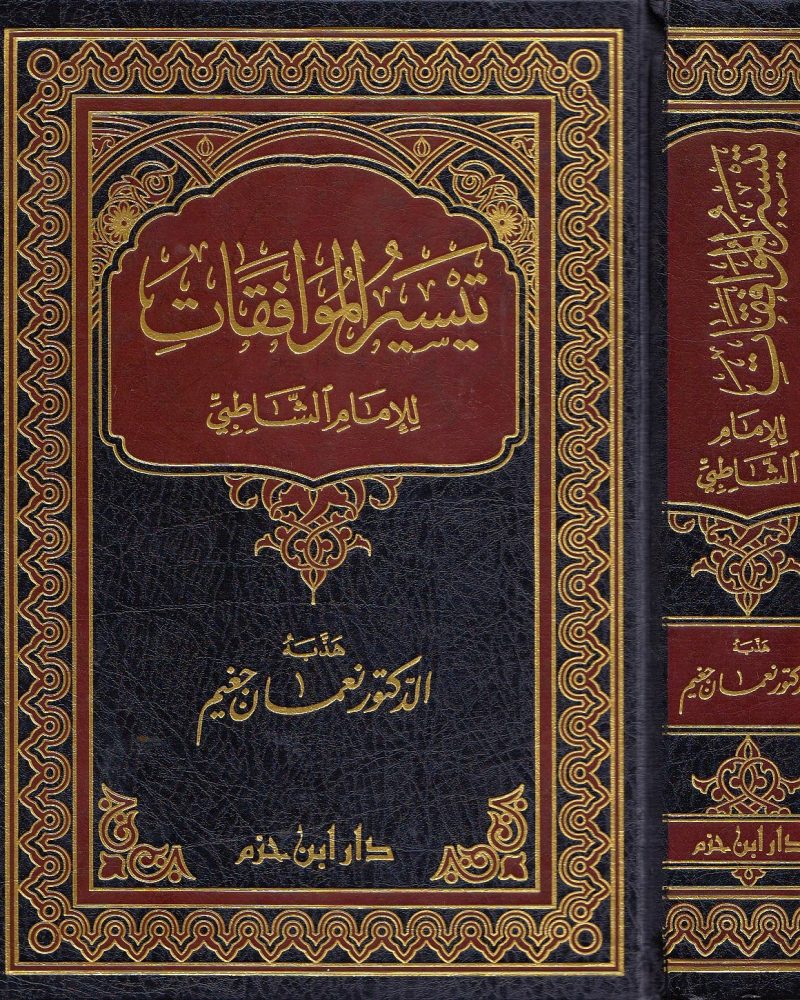 تَيْسِيرُ المُوَافَقَاتِ
لِلإِمَامِ ٱلشَّاطِبِيِّ
هَذَّبَهُ
الدّكتور نعمان جغيم
دار ابن حزم
تَيْسِيرُ المُوَافَقَاتِ
لِلإِمَامِ
ٱلشَّاطِبِيِّ
هَذَّبَهُ
نعمان جغيم
دار ابن حزم